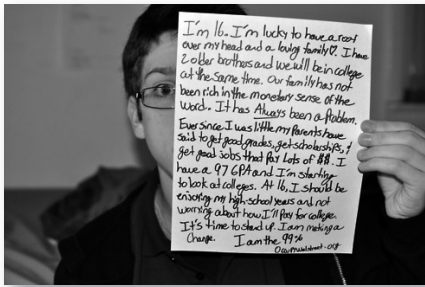 I'm 16. I'm lucky to have a roof
over my head and a loving family♡. I have
2 older brothers and we will be in college
at the same time. Our family has not
been rich in the monetary sense of the
word. It has Always been a problem.
Ever since I was little my Parents have
said to get good grades, get scholarships, &
get good jobs that Pay lots of $$. I
have a 97 GPA and I'm starting
to look at colleges. At 16, I should be
enjoying my high-school years and not
worrying about how I'll Pay for college.
It's time to stand up. I am making a
Change. I am the 99%
Occupywallstreet.org